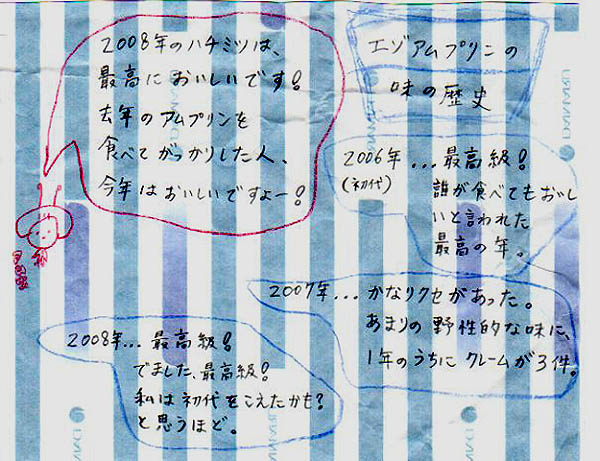 2008年のハチミツは、
最高においしいです!
去年のアムプリンを
食べてがっかりした人、
今年はおいしいですよー!
エゾアムプリンの
味の歴史
2006年...最高級!
(初代) 誰が食べてもおいし
いと言われた
最高の年。
2007年...かなりクセがあった。
あまりの野性的な味に、
1年のうちにクレームが3件。
2008年...最高級!
でました、最高級!
私は初代をこえたかも?
と思うほど。